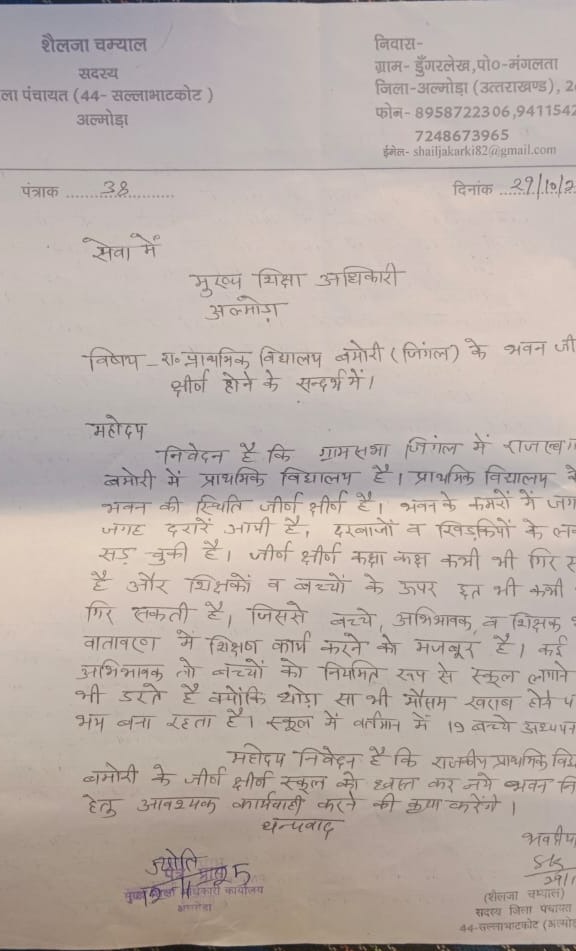 शैलजा चम्याल
सदस्य
ला पंचायत (44- सल्लाभाटकोट )
अल्मोड़ा
निवास-
ग्राम- डुँगरलेख,पो०-मंगलता
जिला-अल्मोड़ा (उत्तराखण्ड), 2
फोन- 8958722306,9411542
7248673965
ईमेल- shailjakarki82@gmail.com
पंत्राक ......38......
दिनांक ...29/10/2
सेवा में
मुख्य शिक्षा अधिकारी
अल्मोड़ा
विषय - रा० प्राथमिक विद्यालय बमोरी (जिंगल) के भवन जी
क्षीर्ण होने के सन्दर्भ में।
महोदय
निवेदन है कि ग्रामसभा जिंगल में राजस्व
बमोरी में प्राथमिक विद्यालय है। प्राथमिक विद्यालय के
भवन की स्थिति जीर्ण क्षीर्ण है। भवन के कमरों में जग
जगह दरारें आयी है, दरबाजों व खिड़कियों के
सड़ चुकी है। जीर्ण क्षीर्ण कक्षा कक्ष कभी भी गिर स
है और शिक्षकों व बच्चों के ऊपर छत भी कभी
गिर सकती है, जिससे बच्चे, अभिभावक, व शिक्षक
वातावरण में शिक्षण कार्य करने को मजबूर है। कई
अभिभावक तो बच्चों को नियमित रूप से स्कूल लगाने
भी डरते है क्योंकि थोड़ा सा भी मौसम खराब होने प
भय बना रहता है। स्कूल में वर्तमान में 19 बच्चे अध्ययन
महोदय निवेदन है कि राजकीय प्राथमिक विद्य
बमोरी के जीर्ण क्षीर्ण स्कूल को ध्वस्त कर नये भवन नि
हेतु आवश्यक कार्यवाही करने की कृपा करेंगे।
धन्यवाद
भवदीय
29/1
(शैलजा चम्याल)
सदस्य जिला पंचायत
44-सल्लाभाटकोट (अल्मो
ज्योति
पत्र प्राप्त
मुख्य शिक्षा अधिकारी कार्यालय
अल्मोड़ा